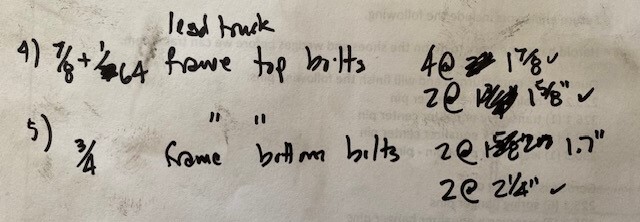 lead truck
4) 7/8 + 1/64 frame top bolts 4@ 1 7/8 ✓
2@ 1 5/8" ✓
" "
5) 3/4 frame bottom bolts 2@ 1.7"
2@ 2 1/4" ✓